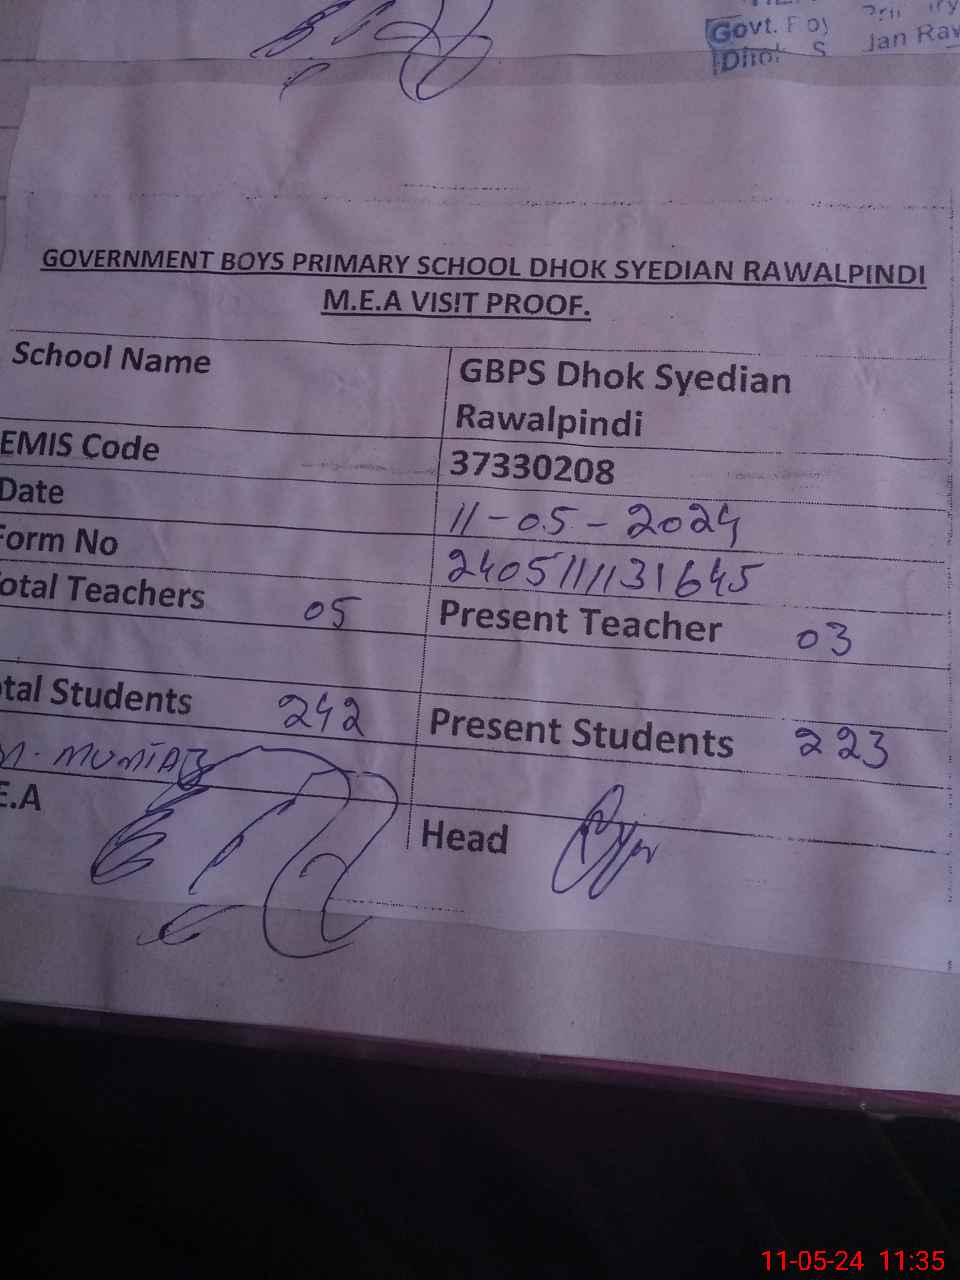 Govt.
Jan Raw
GOVERNMENT BOYS PRIMARY SCHOOL DHOK SYEDIAN RAWALPINDI
M.E.A VISIT PROOF.
School Name GBPS Dhok Syedian
Rawalpindi
EMIS Code 37330208
Date 11-05-2024
Form No 240511131645
otal Teachers 05 Present Teacher 03
tal Students 242 Present Students 223
M. MUMTAZ
E.A Head
11-05-24 11:35